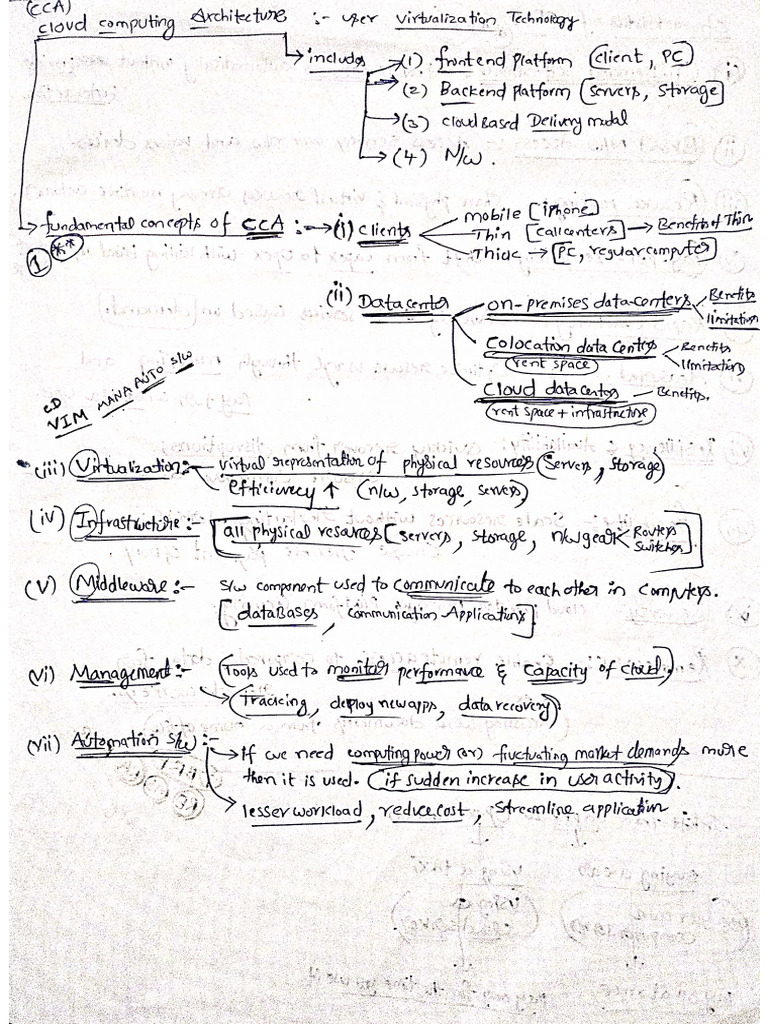 (CCA)
Cloud Computing Architecture :- user virtualization Technology
includes
(1) frontend platform (client, PC)
(2) Backend platform [servers, storage]
(3) cloudBased Delivery modal
(4) N/w.
fundamental concepts of CCA :-
1 **
(i) Clients
mobile [iphone]
Thin [callcenters] → Benefits of Thin
Thick → [PC, regular computer]
(ii) Datacenter
on-premises datacenters
Benefits
limitation
Colocation data Centers
(rent space)
Benefits
limitation
Cloud datacenter
Benefits.
(rent space + infrastructure)
CD
VIM MANA AUTO S/w
(iii) Virtualization :- virtual representation of physical resources (servers, storage)
efficiency ↑ (n/w, storage, servers)
(iv) Infrastructure :- all physical resources [servers, storage, n/w gear
Routers
Switches].
(v) Middleware :- s/w component used to communicate to each other in computers.
[dataBases, communication Applications]
(vi) Management :- (Tools used to monitor performance & Capacity of cloud).
(Tracking, deploy new apps, data recovery)
(vii) Automation s/w :-
→ If we need computing power (or) fluctuating market demands more
then it is used. (if sudden increase in user activity).
→ lesser workload, reduce cost, streamline application